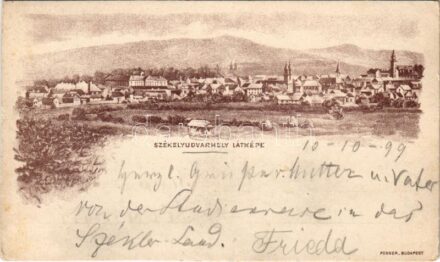 SZÉKELYUDVARHELY LÁTKÉPE
10-10-99
Herzl. Gruß für Mutter u. Vater
von der Studienreise in das
Székler Land. Frieda
PENNER, BUDAPEST